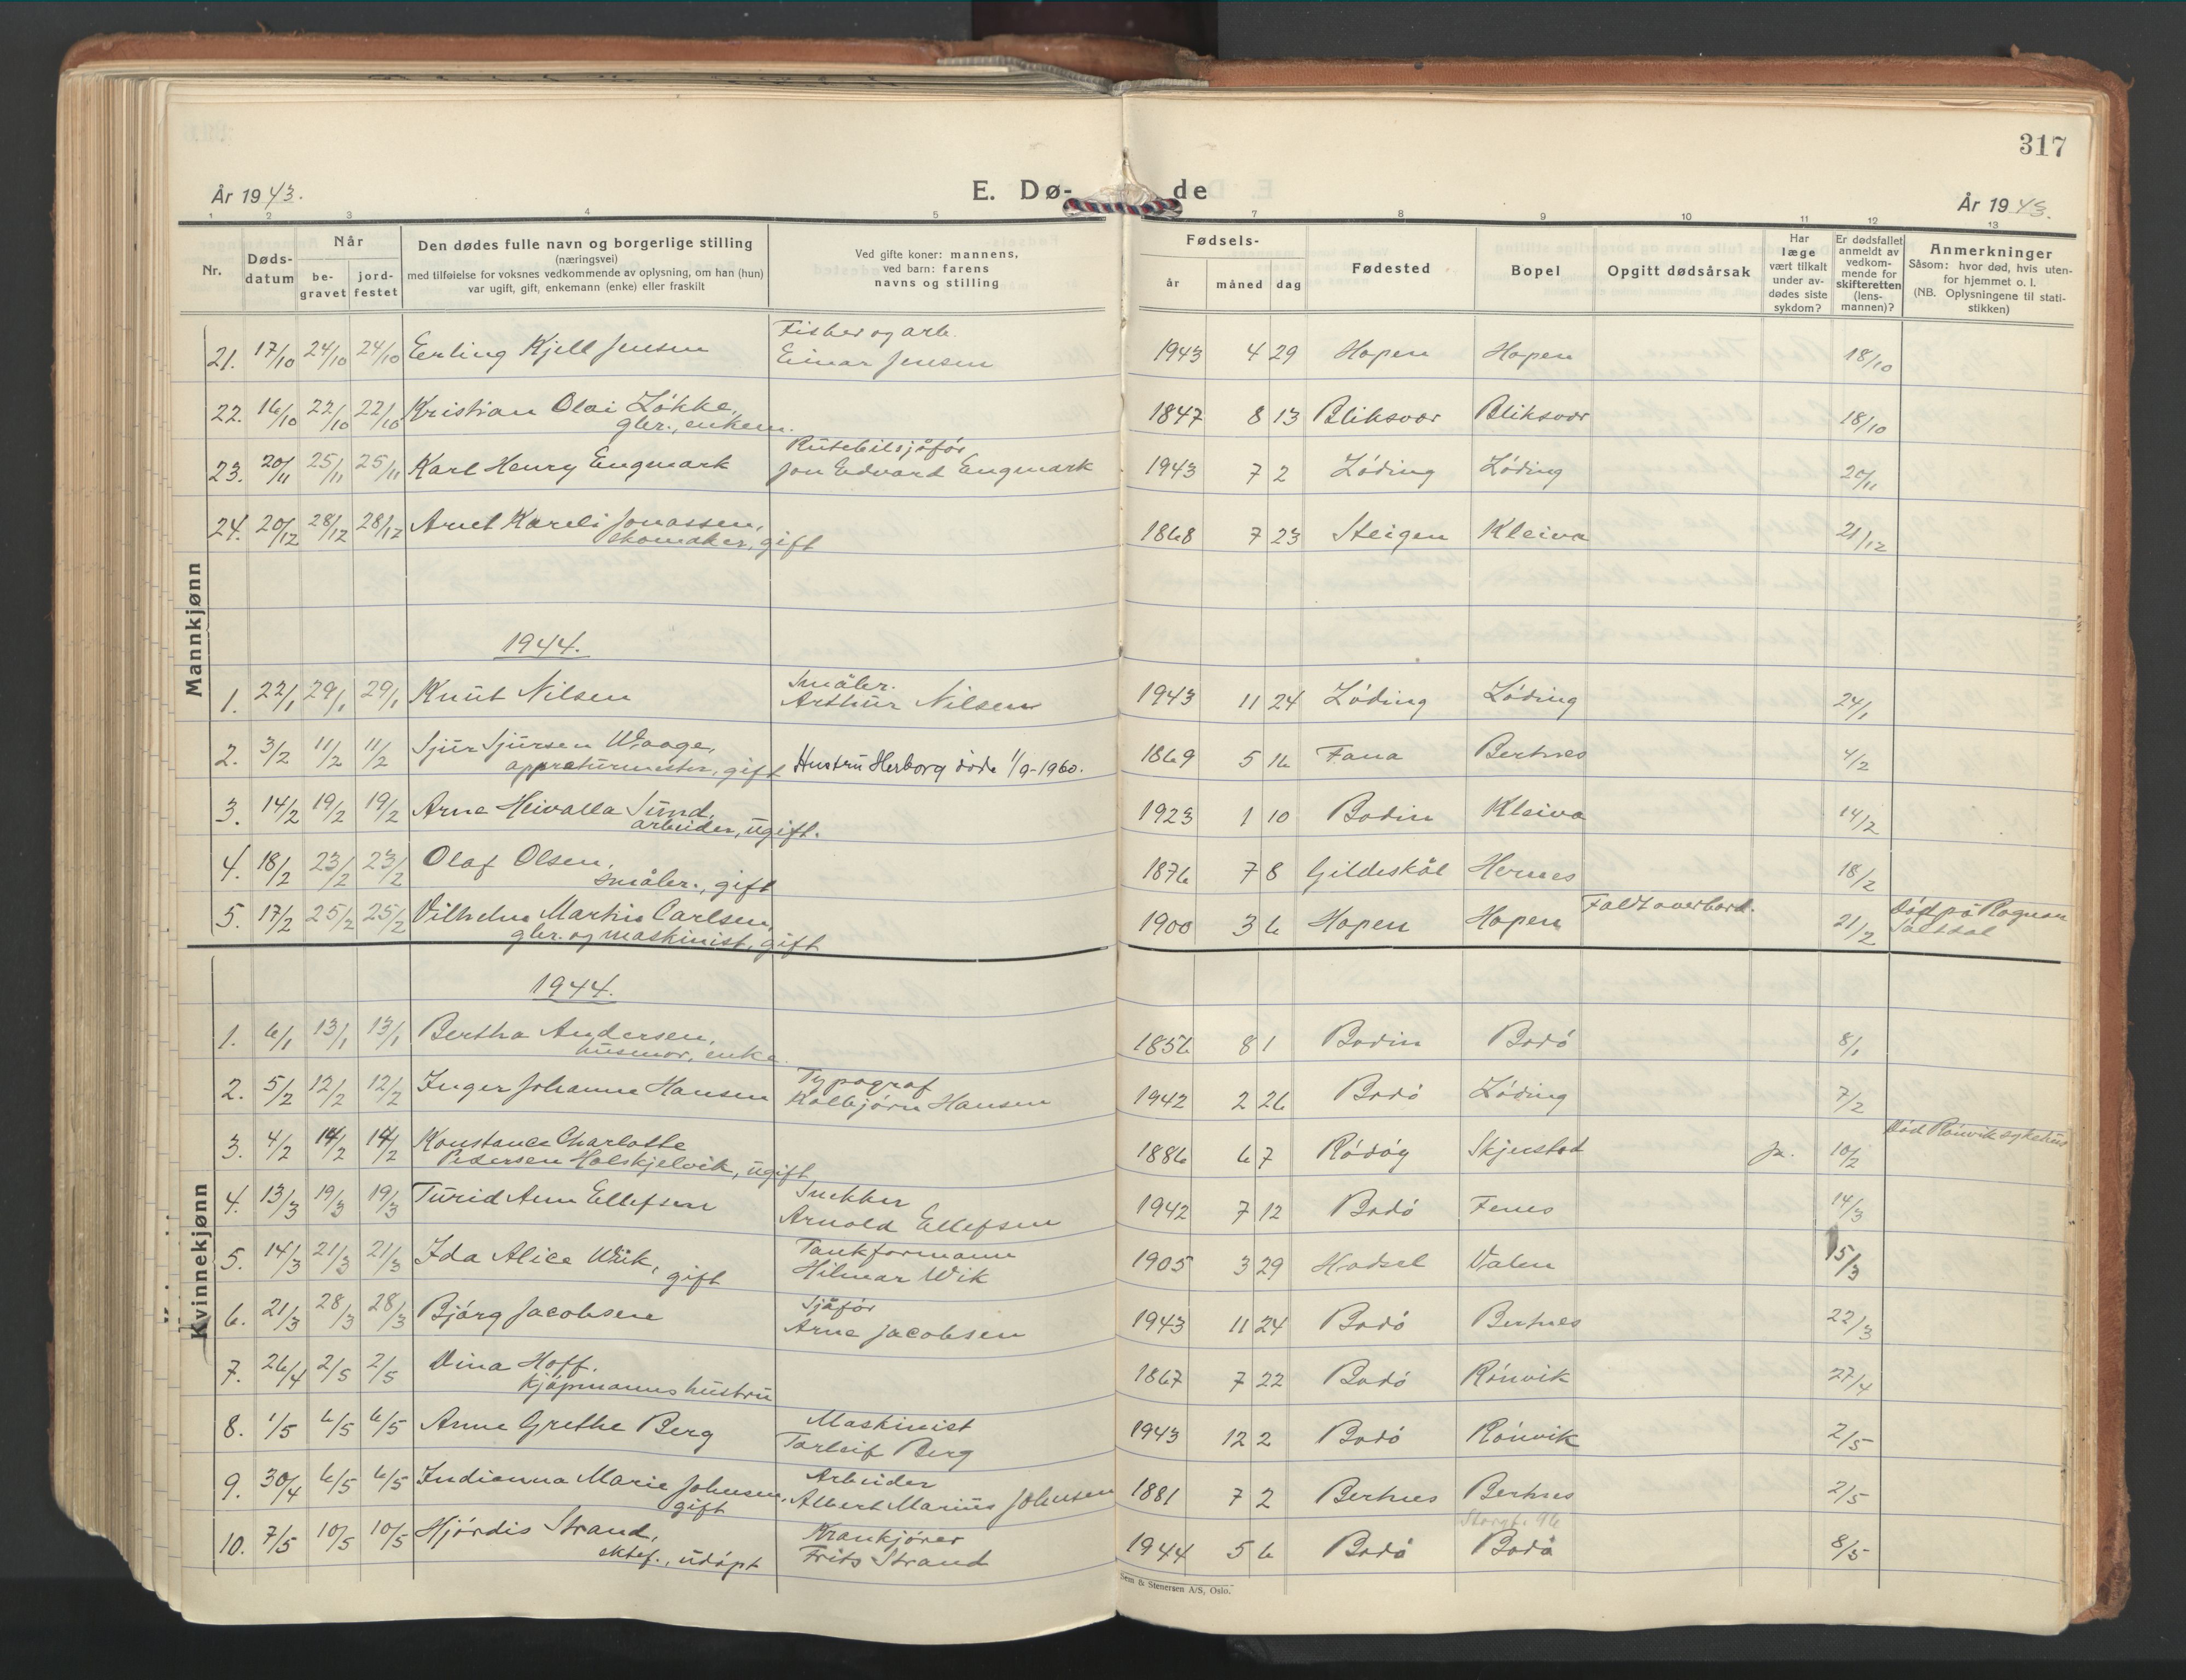 317
År 1943.
E. Dø-
de
År 1943.
1 2 3 4 5 7 8 9 10 11 12 13
Nr.
Døds-
datum
Når
be-
gravet
jord-
festet
Den dødes fulle navn og borgerlige stilling
(næringsvei)
med tilføielse for voksnes vedkommende av oplysning, om han (hun)
var ugift, gift, enkemann (enke) eller fraskilt
Ved gifte koner: mannens,
ved barn: farens
navns og stilling
Fødsels-
år måned dag
Fødested
Bopel
Opgitt dødsårsak
Har
læge
vært tilkalt
under av-
dødes siste
sykdom?
Er dødsfallet
anmeldt av
vedkom-
mende for
skifteretten
(lens-
mannen)?
Anmerkninger
Såsom: hvor død, hvis uten-
for hjemmet o. l.
(NB. Oplysningene til stati-
stikken)
Mannkjønn
Fisker og arb.
21. 17/10 24/10 24/10 Erling Kjell Jensen Einar Jensen 1943 4 29 Hopen Hopen 18/10
22. 16/10 22/10 22/10 Kristian Olai Løkke, 1847 8 13 Bliksvær Bliksvær 18/10
gbr., enkem.
Rutebilsjåfør
23. 20/11 25/11 25/11 Karl Henry Engmark Jon Edvard Engmark 1943 7 2 Løding Løding 20/11
24. 20/12 28/12 28/12 Arnt Kareli Jonassen, 1868 7 23 Steigen Kleiva 21/12
skomaker, gift
1944.
Småbr.
1. 22/1 29/1 29/1 Knut Nilsen Arthur Nilsen 1943 11 24 Løding Løding 24/1
2. 3/2 11/2 11/2 Sjur Sjursen Waage, 1869 5 16 Fana Bertnes 4/2
appreturmester, gift Hustru Herborg døde 1/9-1960.
3. 14/2 19/2 19/2 Arne Heivalla Sund, 1923 1 10 Bodin Kleiva 14/2
arbeider, ugift.
4. 18/2 23/2 23/2 Olaf Olsen, 1876 7 8 Gildeskål Hernes 18/2
småbr., gift
5. 17/2 25/2 25/2 Vilhelm Martin Carlsen, 1900 3 6 Hopen Hopen Falt overbord. 21/2 Død på Rognan
gbr. og maskinist, gift Saltdal
Kvinnekjønn
1944.
1. 6/1 13/1 13/1 Bertha Andersen, 1856 8 1 Bodin Bodø 8/1
husmor, enke.
Typograf
2. 5/2 12/2 12/2 Inger Johanne Hansen Kolbjørn Hansen 1942 2 26 Bodø Løding 7/2
3. 4/2 14/2 14/2 Konstance Charlotte 1886 6 7 Rødøy Skjerstad ja. 10/2 Død Rønvik sykehus
Pedersen Halskjelvik, ugift
Snekker
4. 13/3 19/3 19/3 Turid Ann Ellefsen Arnold Ellefsen 1942 7 12 Bodø Fenes 14/3
Tankformann
5. 14/3 21/3 21/3 Ida Alice Wik, gift Hilmar Wik 1905 3 29 Hadsel Valen 15/3
Sjåfør
6. 21/3 28/3 28/3 Bjørg Jacobsen Arne Jacobsen 1943 11 24 Bodø Bertnes 22/3
7. 26/4 2/5 2/5 Dina Hoff. 1867 7 22 Bodø Rønvik 27/4
kjøpmanns hustru
Maskinist
8. 1/5 6/5 6/5 Anne Grethe Berg Torleif Berg 1943 12 2 Bodø Rønvik 2/5
Arbeider
9. 30/4 6/5 6/5 Indianna Marie Johnsen, Albert Marius Johnsen 1881 7 2 Bertnes Bertnes 2/5
gift
Storgt. 96
10. 7/5 10/5 10/5 Hjørdis Strand, Krankjører 1944 5 6 Bodø Bodø 8/5
ektef., udøpt Frits Strand
Sem & Stenersen A/S, Oslo.